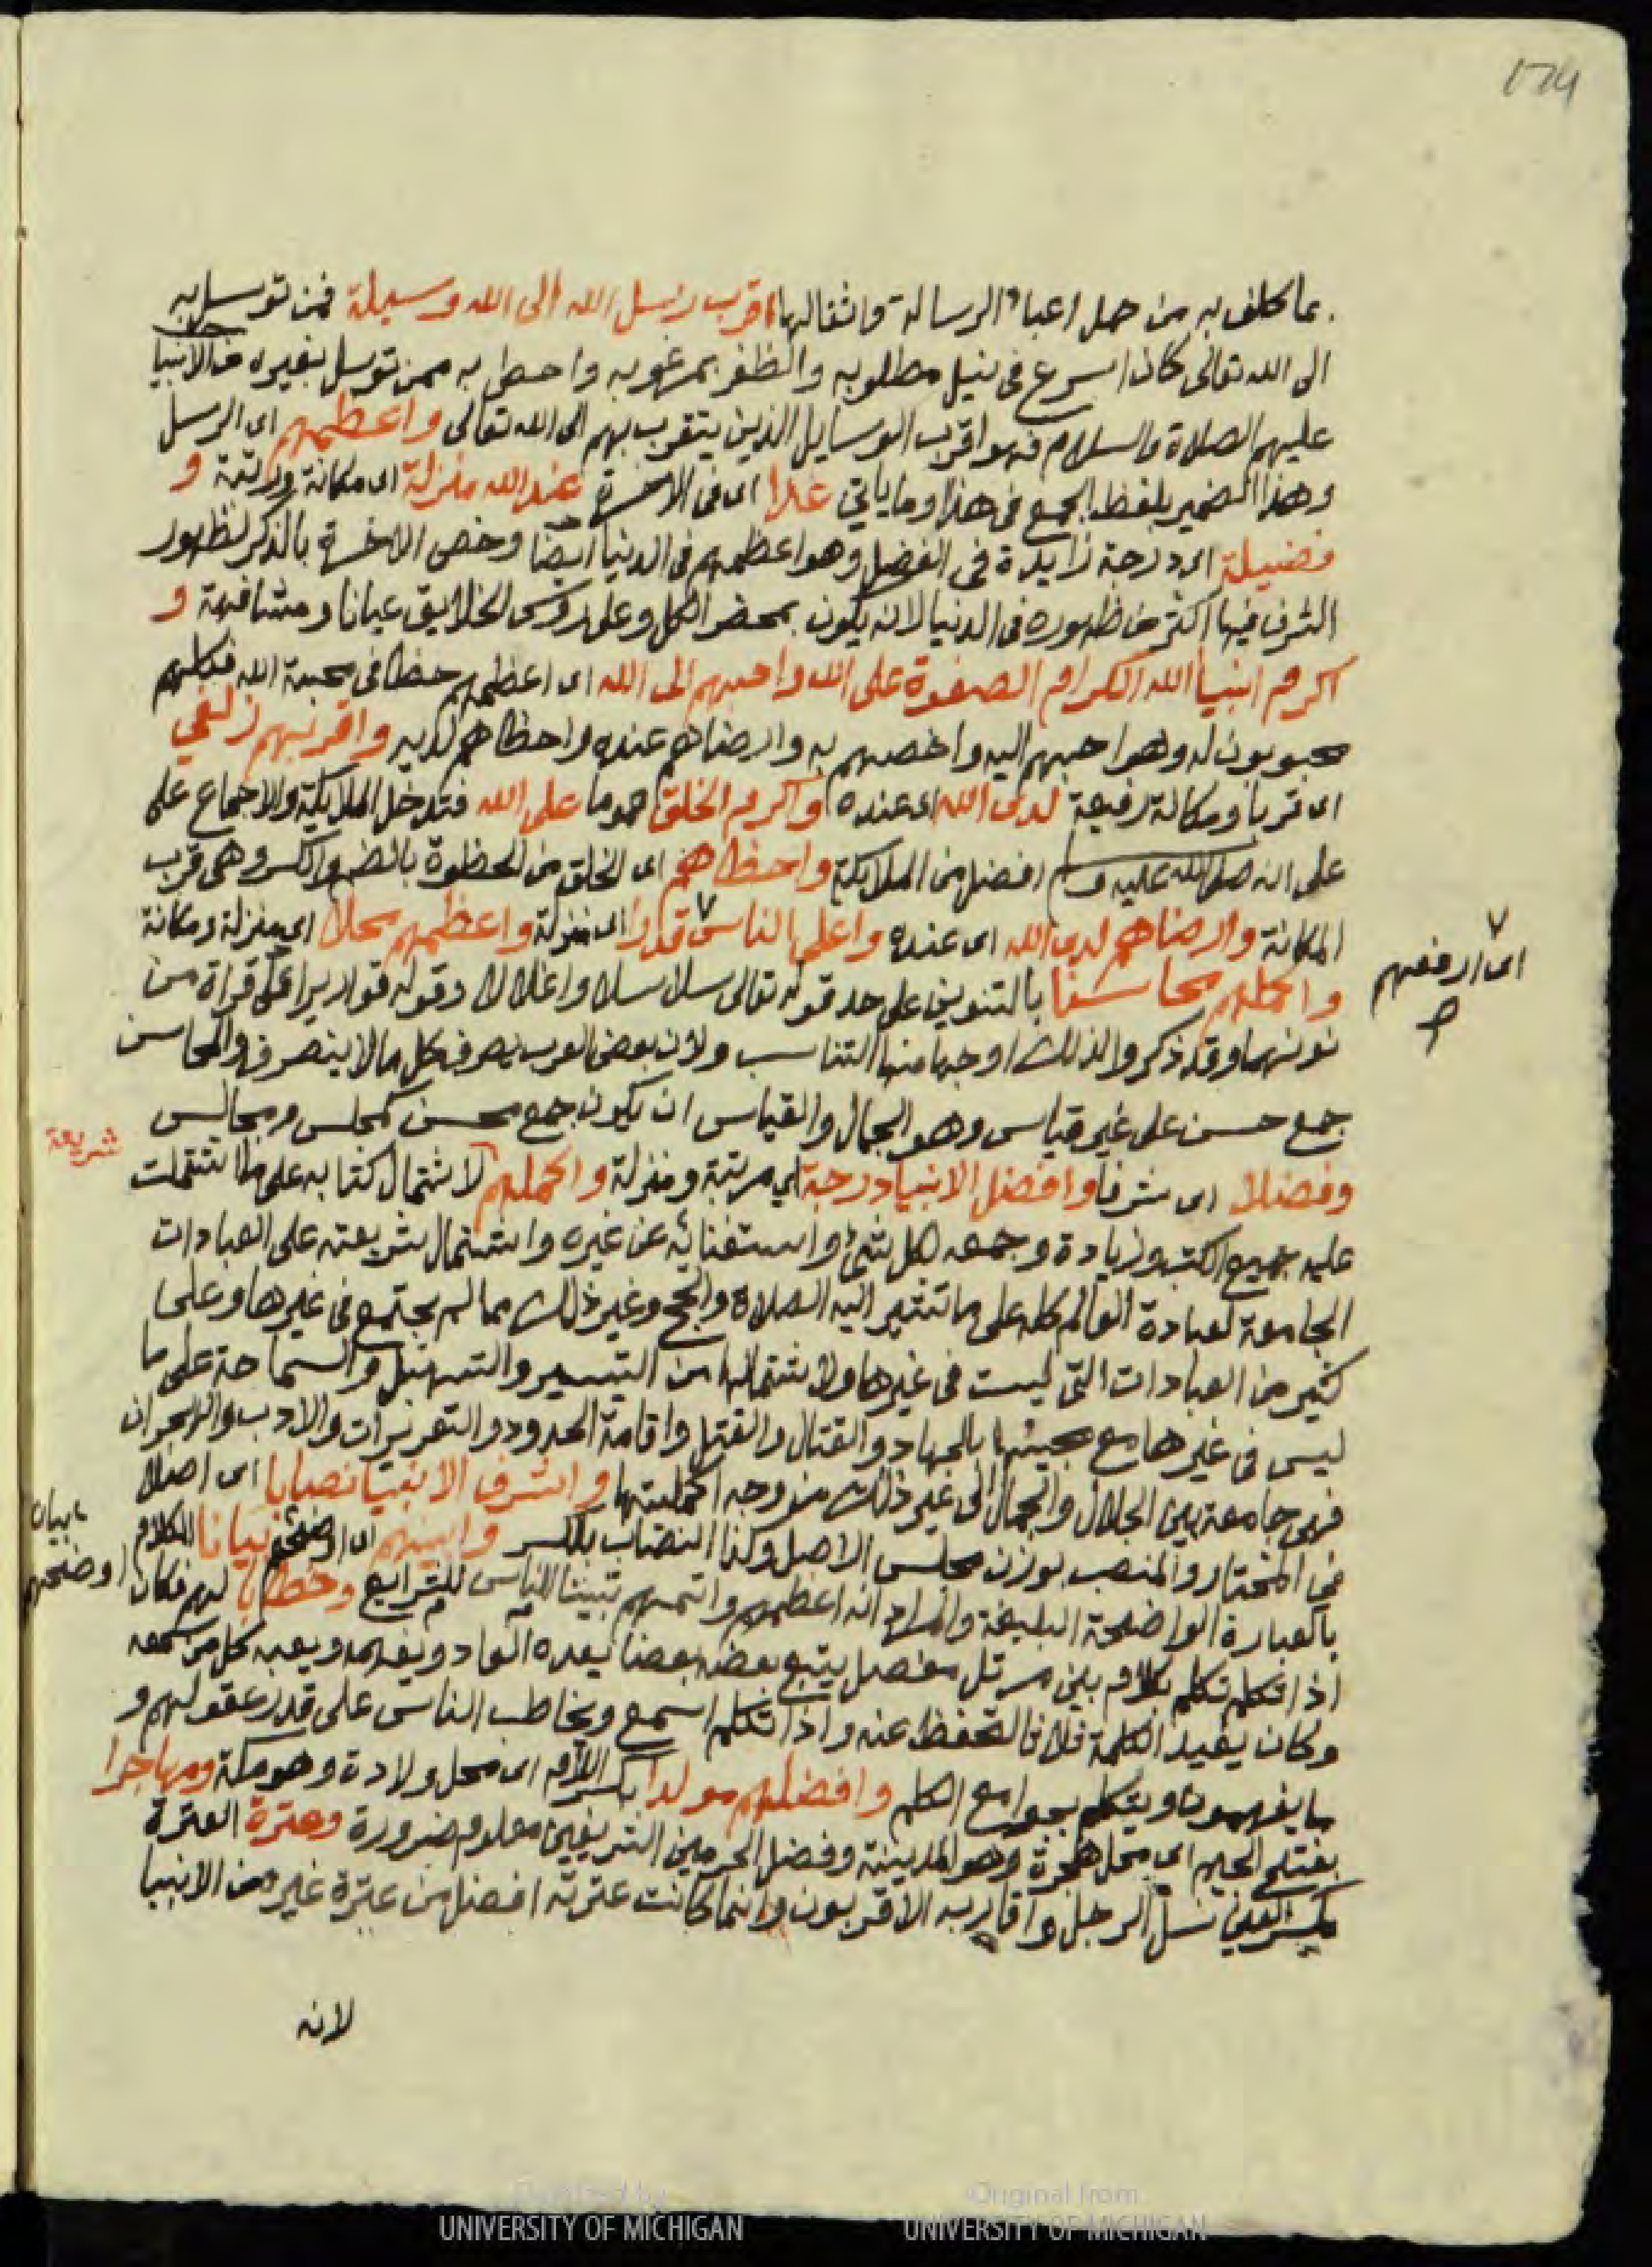 بما كلف به من حمل اعباء الرسالة واثقالها اقرب رسل الله الى الله وسيلة فمن توسل به
الى الله تعالى كان اسرع فى نيل مطلوبه والظفر بمرغوبه واحظى به ممن توسل بغيره من الانبيا
عليهم الصلاة والسلام فهو اقرب الوسايل الذين يتقرب بهم الى الله تعالى واعظمهم اى الرسل
وهذا الضمير بلفظ الجمع فى هذا وما ياتي غدا اى فى الاخرة عند الله منزلة اى مكانة ورتبة و
فضيلة اى درجة زايدة فى الفضل وهو اعظمهم فى الدنيا ايضا وخص الاخرة بالذكر لظهور
الشرف فيها اكثر من ظهوره فى الدنيا لانه يكون بمحضر الكل وعلى روس الخلايق عيانا ومشافهة و
اكرم انبيا الله الكرام الصفوة على الله واحبهم الى الله اى اعظمهم حظا فى محبة الله فكلهم
محبوبون له وهو احبهم اليه واخصهم به وارضاهم عنده واحظاهم لديه واقربهم زلفي
اى قربا ومكانة رفيعة لدى الله اى عنده واكرم الخلق عموما على الله فتدخل الملايكة والاجماع على
على انه صلى الله عليه وسلم افضل من الملايكة واحظاهم اى الخلق من الحظوة بالضم والكسر وهى قرب
المكانة وارضاهم لدى الله اى عنده واعلى الناس قدرا اى منزلة واعظمهم محلا اى منزلة ومكانة
واكملهم محاسنا بالتنوين على حد قوله تعالى سلاسلا واغلالا وقوله قواريرا فى قراة من
نونهما وقد ذكروا لذلك اوجها منها التناسب ولان بعض العرب يصرف كل مالا ينصرف والمحاسن
جمع حسن على غير قياس وهو الجمال والقياس ان يكون جمع محسن كمجلس ومجالس
وفضلا اى شرفا وافضل الانبيا درجة اي مرتبة ومنزلة واكملهم لاشتمال كتابه على ما اشتملت
عليه جميع الكتب وزيادة وجمعه لكل شئ واستغنائه عن غيره واشتمال شريعته على العبادات
الجامعة لعبادة العالم كله على ما تشير اليه الصلاة والحج وغير ذلك مما لم يجتمع فى غيرها وعلى
كثير من العبادات التى ليست فى غيرها ولاشتمالها من التيسير والتسهيل والسماحة على ما
ليس فى غيرها مع مجيئها بالجهاد والقتال والقتل واقامة الحدود والتعزيرات والادب والهجران
فهى جامعة بين الجلال والجمال الى غير ذلك من وجه اكمليتها واشرف الانبيا نصابا اى اصلا
في المختار والمنصب بوزن مجلس الاصل وكذا النصاب بالكسر وابينهم اى اوضحهم بيانا الكلام
بالعبارة الواضحة البليغة والمراد انه اعظمهم واتمهم تبيينا للناس للشرايع وخطابا لهم فكان
اذا تكلم تكلم بكلام بين مرتل مفصل يتبع بعضه بعضا يعده العاد ويفهمه ويعيه كل من سمعه
وكان يعيد الكلمة ثلاثا لتحفظ عنه واذا تكلم اسمع ويخاطب الناس على قدر عقولهم و
ما يفهمون ويتكلم بجوامع الكلم وافضلهم مولدا بكسر اللام اى محل ولادة وهو مكة ومهاجرا
بفتح الجيم اى محل هجرة وهو المدينة وفضل الحرمين الشريفين معلوم ضرورة وعترة العترة
بكسر العين نسل الرجل واقاربه الاقربون وانما كانت عترته افضل من عترة غيره من الانبيا
لانه
اى ارفعهم
شريعة
بيان
اوضحهم
UNIVERSITY OF MICHIGAN
Original from
UNIVERSITY OF MICHIGAN